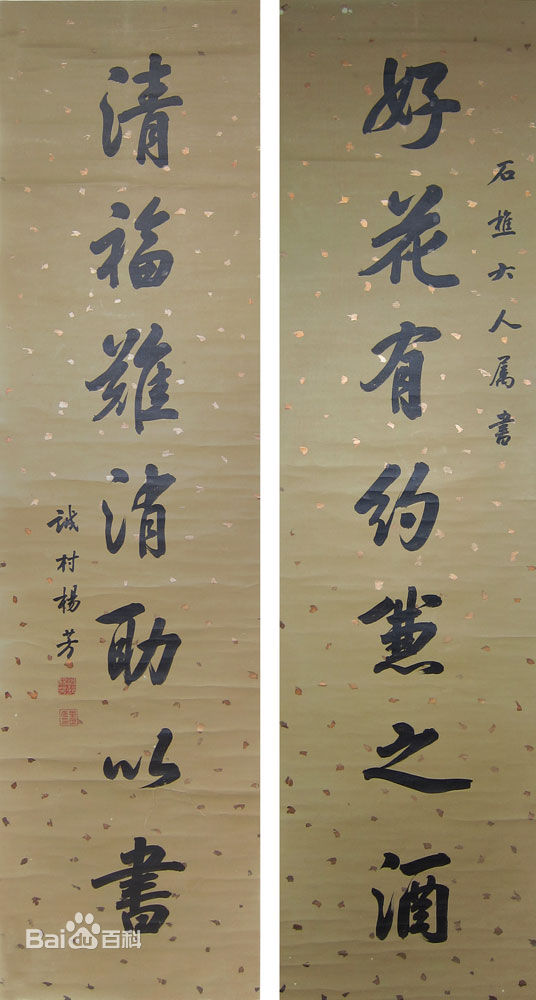 石樵大人属書
好花有約兼之酒
清福難消助以書
誠村楊芳
Baidu百科